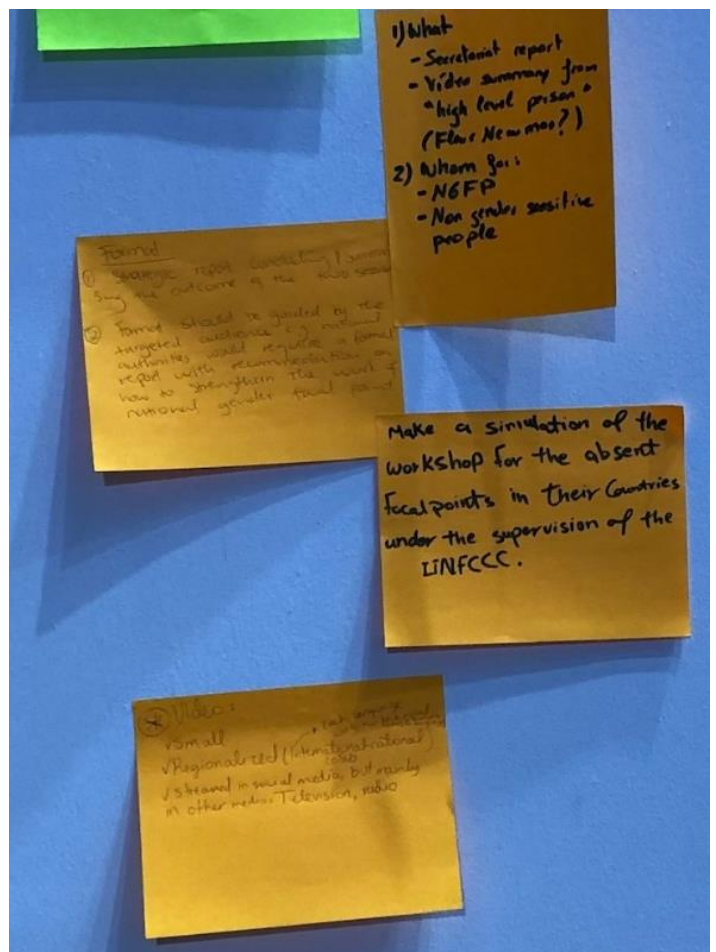 1) What
- Secretariat report
- Video summary from
"high level prison"
(Fleur Newman?)
2) Whom for:
- NGFP
- Non gender sensitive
people
Format
① Strategic report
sing the outcome of the two
② Format should be guided by the
targeted audience e.g national
authorities would require a formal
report with recommendation on
how to strengthen the work of
national gender focal point
Make a simulation of the
workshop for the absent
focalpoints in their Countries
under the supervision of the
UNFCCC.
* Video:
✓ Small
✓ Regionalized (International/national)
✓ Streamed in social media, but mainly
in other medias Television, radio